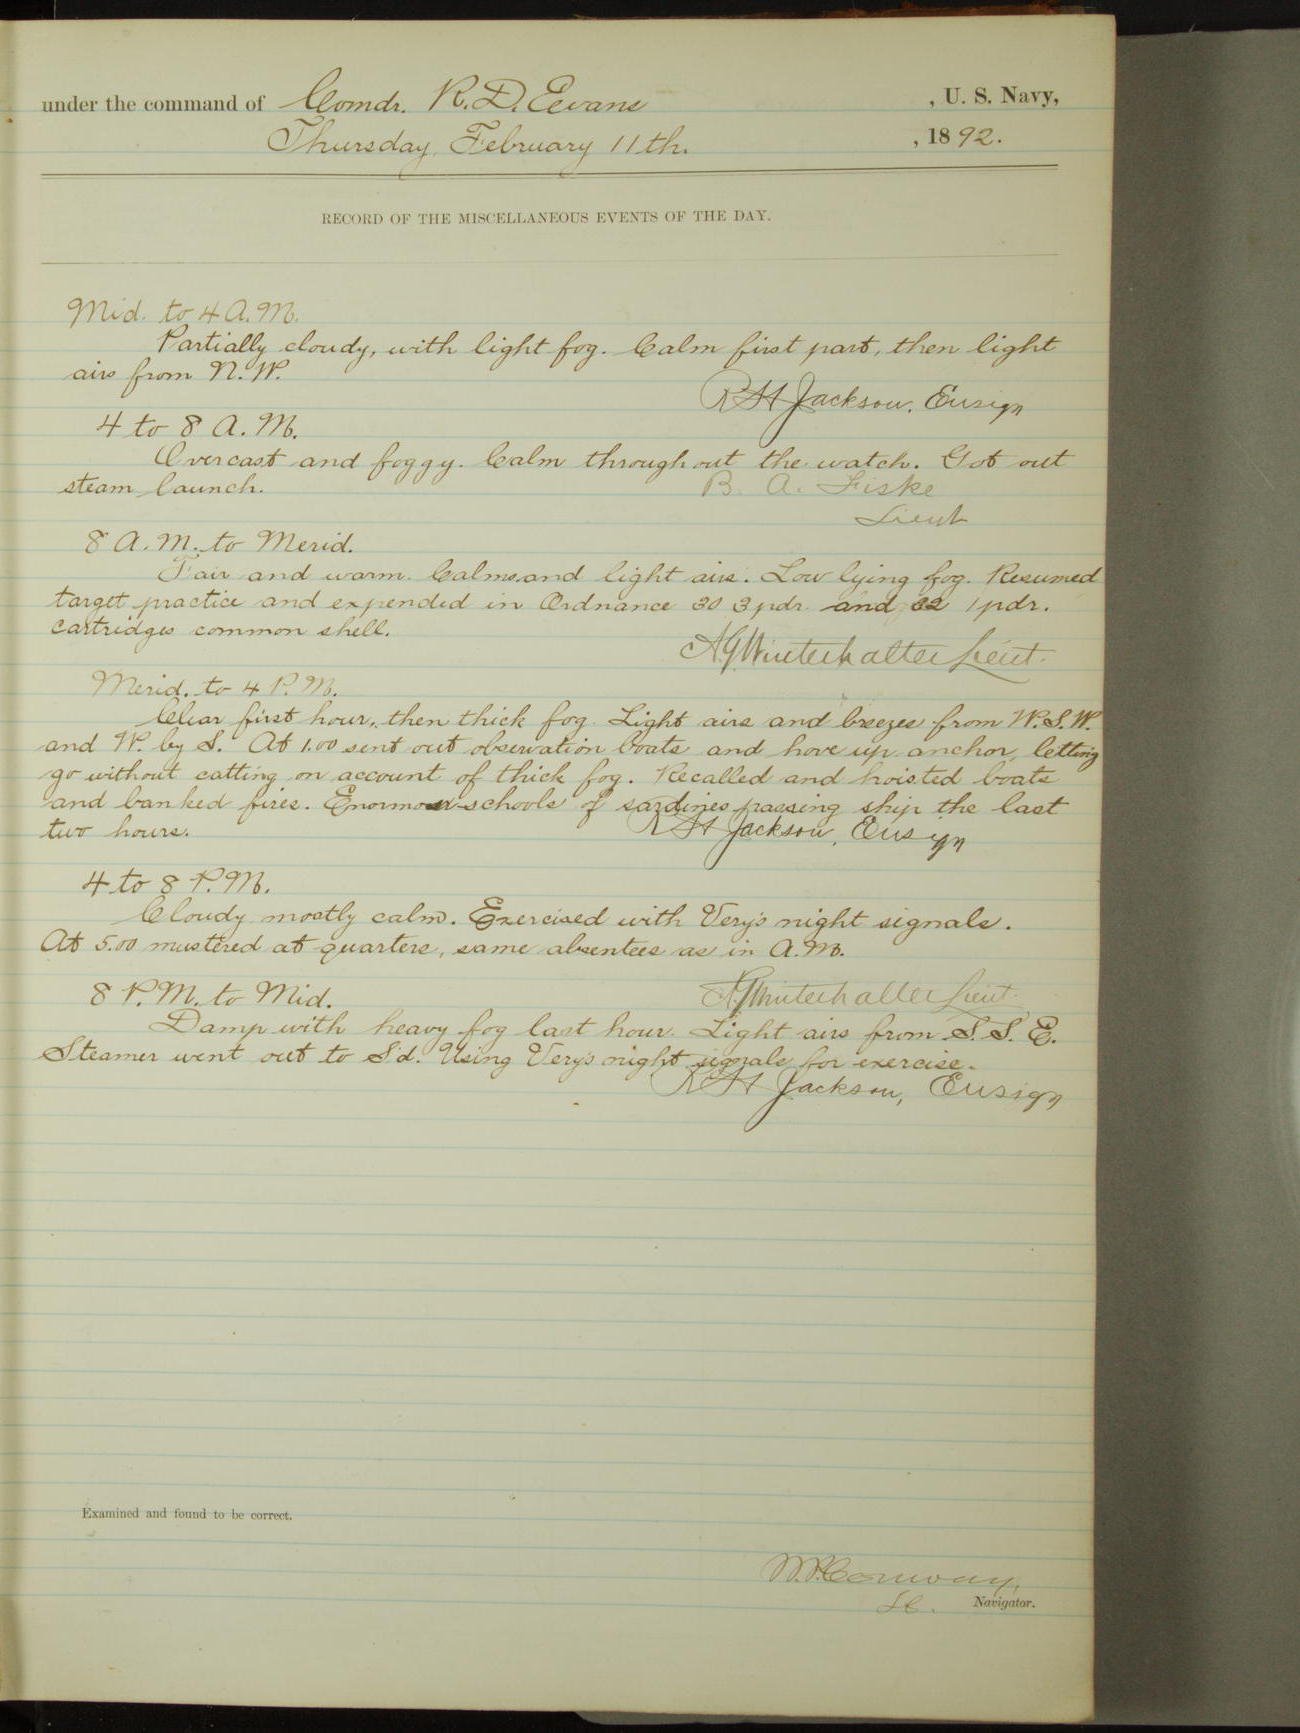 under the command of Comdr. R. D. Evans , U. S. Navy,
Thursday, February 11th. , 1892.
RECORD OF THE MISCELLANEOUS EVENTS OF THE DAY.
Mid. to 4 A.M.
Partially cloudy, with light fog. Calm first part, then light
airs from N.W.
R H Jackson, Ensign
4 to 8 A.M.
Overcast and foggy. Calm throughout the watch. Got out
steam launch.
B. A. Fiske
Lieut
8 A.M. to Merid.
Fair and warm. Calms and light airs. Low lying fog. Resumed
target practice and expended in Ordnance 30 3 pdr. and 32 1 pdr.
cartridges common shell.
A G Winterhalter Lieut.
Merid. to 4 P.M.
Clear first hour, then thick fog. Light airs and breezes from W.S.W.
and W. by S. At 1.00 sent out observation boats and hove up anchor, letting
go without catting on account of thick fog. Recalled and hoisted boats
and banked fires. Enormous schools of sardines passing ship the last
two hours.
R H Jackson, Ensign
4 to 8 P.M.
Cloudy mostly calm. Exercised with Very's night signals.
At 5.00 mustered at quarters, same absentees as in A.M.
A G Winterhalter Lieut.
8 P.M. to Mid.
Damp with heavy fog last hour. Light airs from S.S.E.
Steamer went out to S'd. Using Very's night signals for exercise.
R H Jackson, Ensign
Examined and found to be correct.
W. P. Conway,
Lt. Navigator.